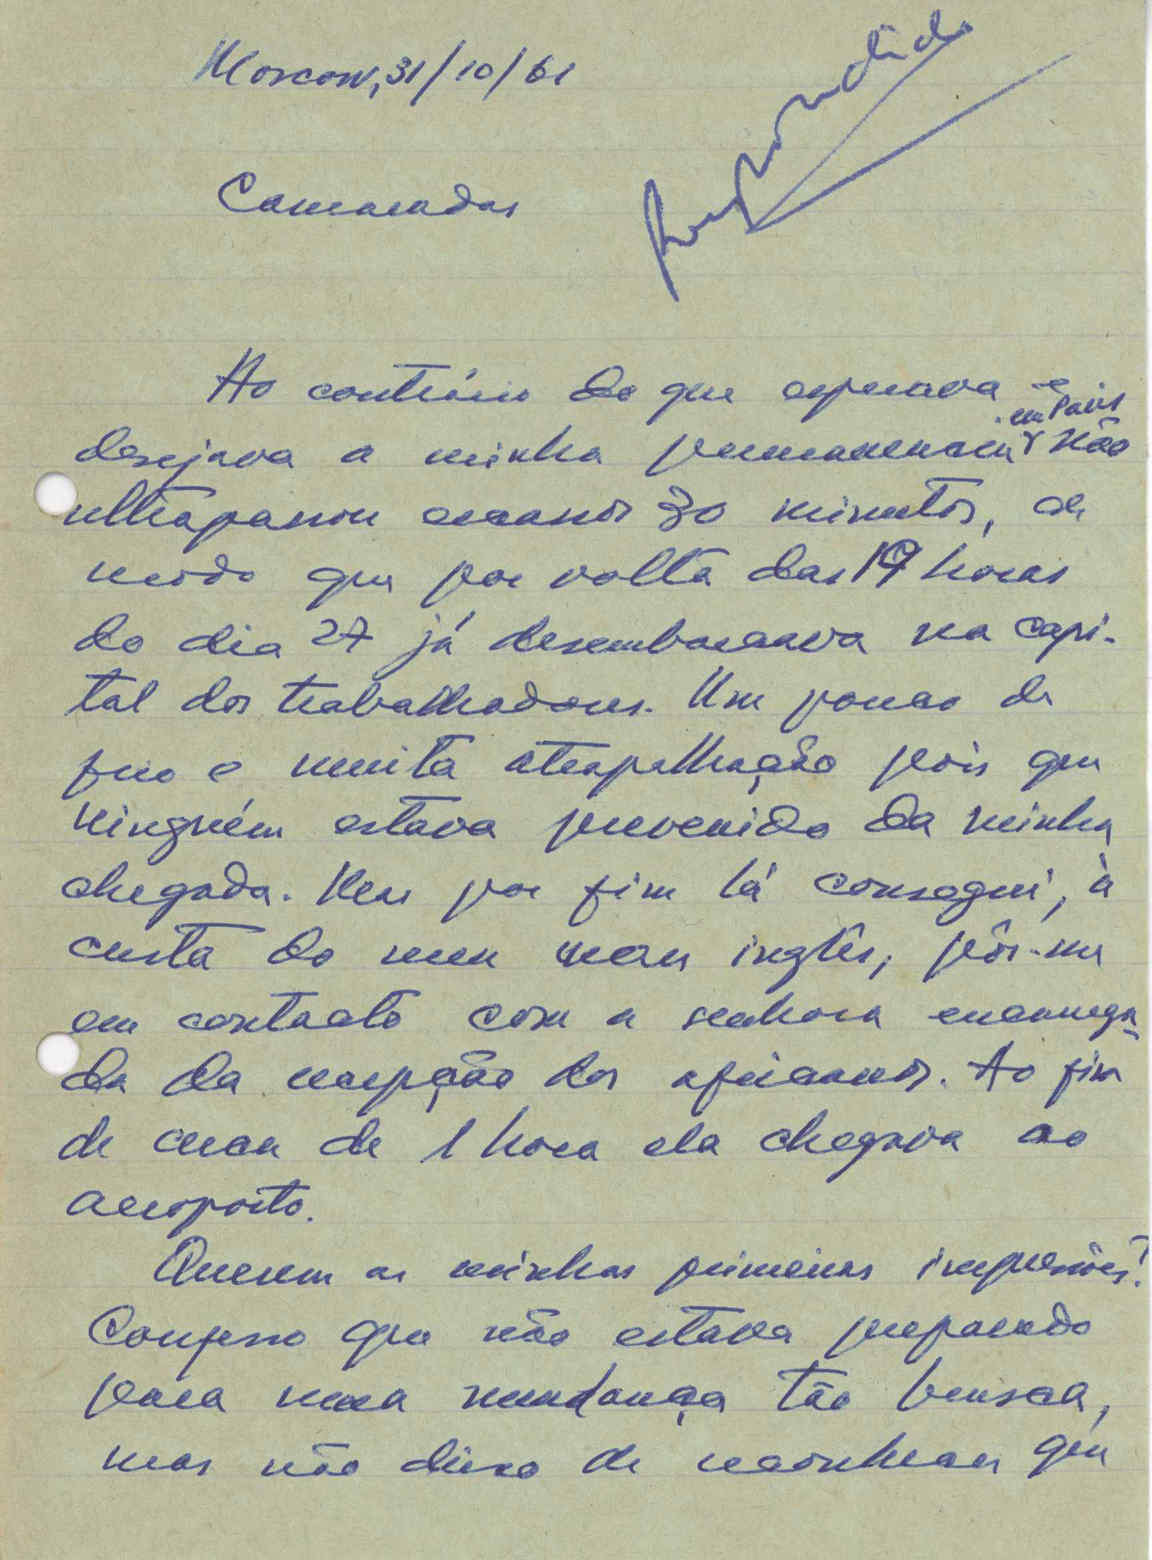 Moscow, 31/10/61
Respondido
Camaradas
Ao contrário do que esperava e
desejava a minha permanencia em Paris não
ultrapassou escassos 30 minutos, de
modo que por volta das 19 horas
do dia 27 já desembarcava na capi-
tal dos trabalhadores. Um pouco de
frio e muita atrapalhação pois que
ninguém estava prevenido da minha
chegada. Mas por fim lá consegui, à
custa do meu mau inglês, pôr-me
em contacto com a senhora encarrega-
da da recepção dos africanos. Ao fim
de cerca de 1 hora ela chegava ao
aeroporto.
Querem as minhas primeiras impressões?
Confesso que não estava preparado
para uma mudança tão brusca,
mas não deixo de reconhecer que